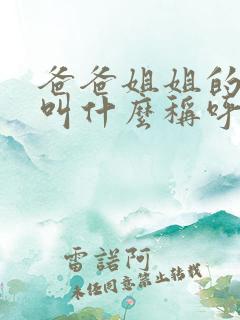 爸爸姐姐的
叫什麼稱呼
雷諾阿
未经同意禁止转载